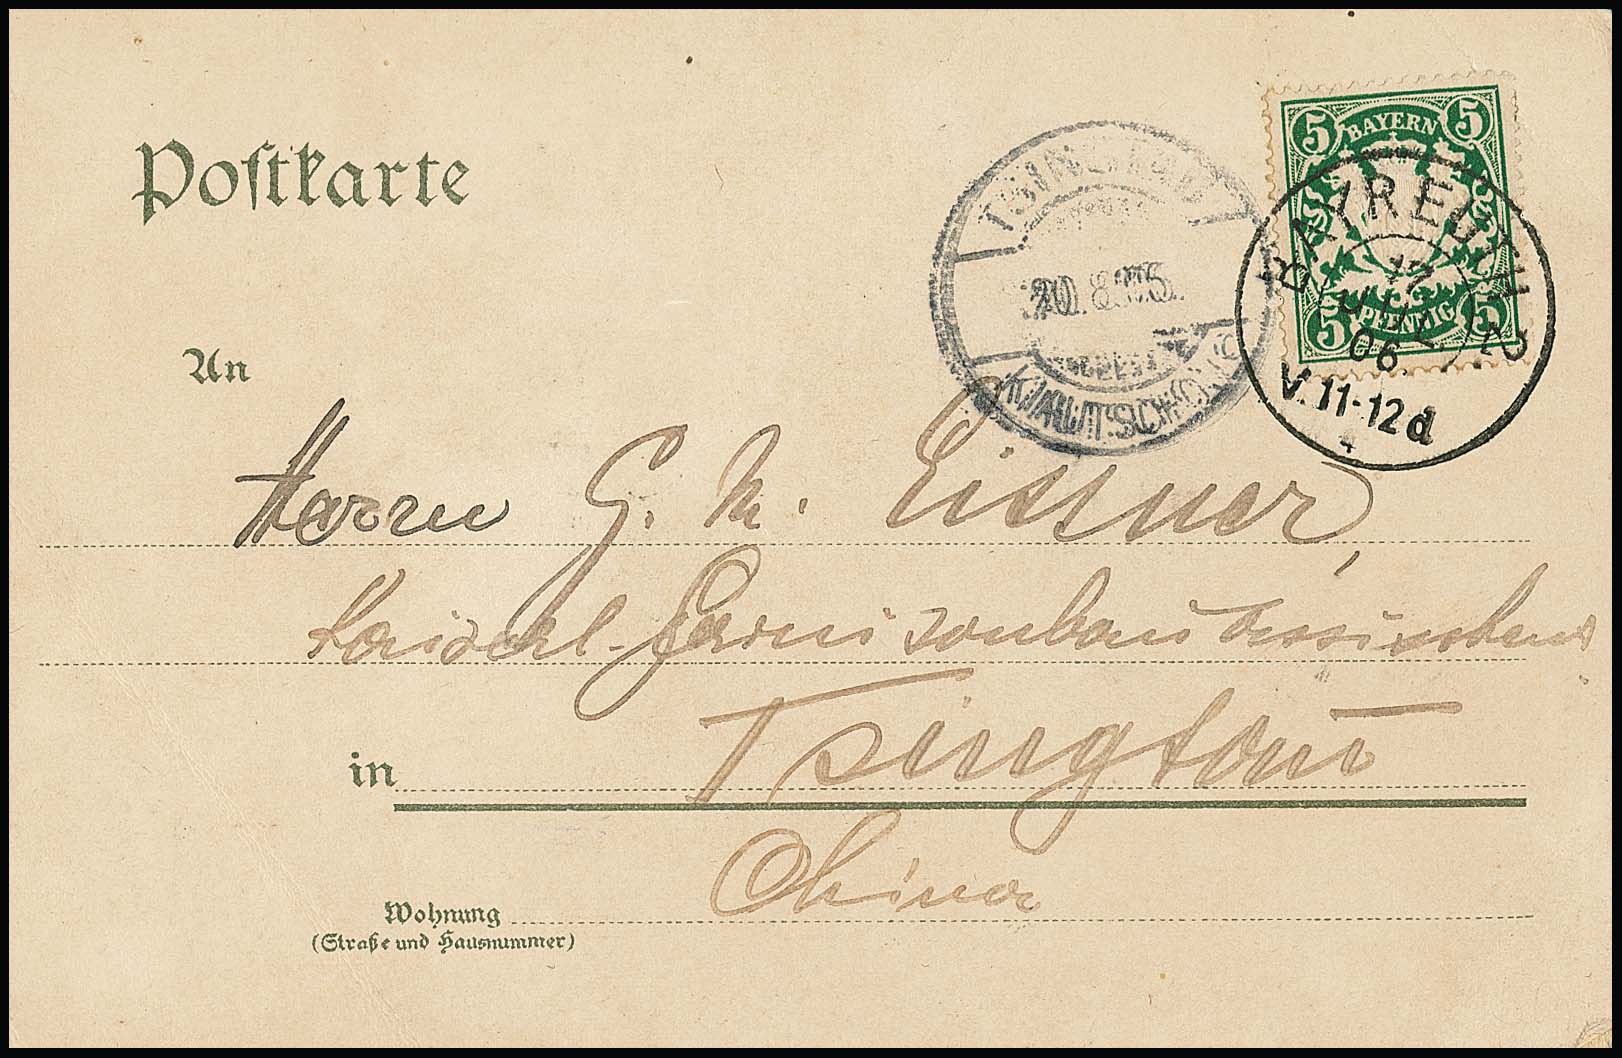 Postkarte
5 BAYERN 5
5 PFENNIG 5
BAYREUTH 2
17
JUL
06
V. 11-12 d
TSINGTAU
KIAUTSCHOU
An
Herrn G. M. Eissner,
Kaiserl. Garnisonbauassistent
in Tsingtau
China
Wohnung
(Straße und Hausnummer)